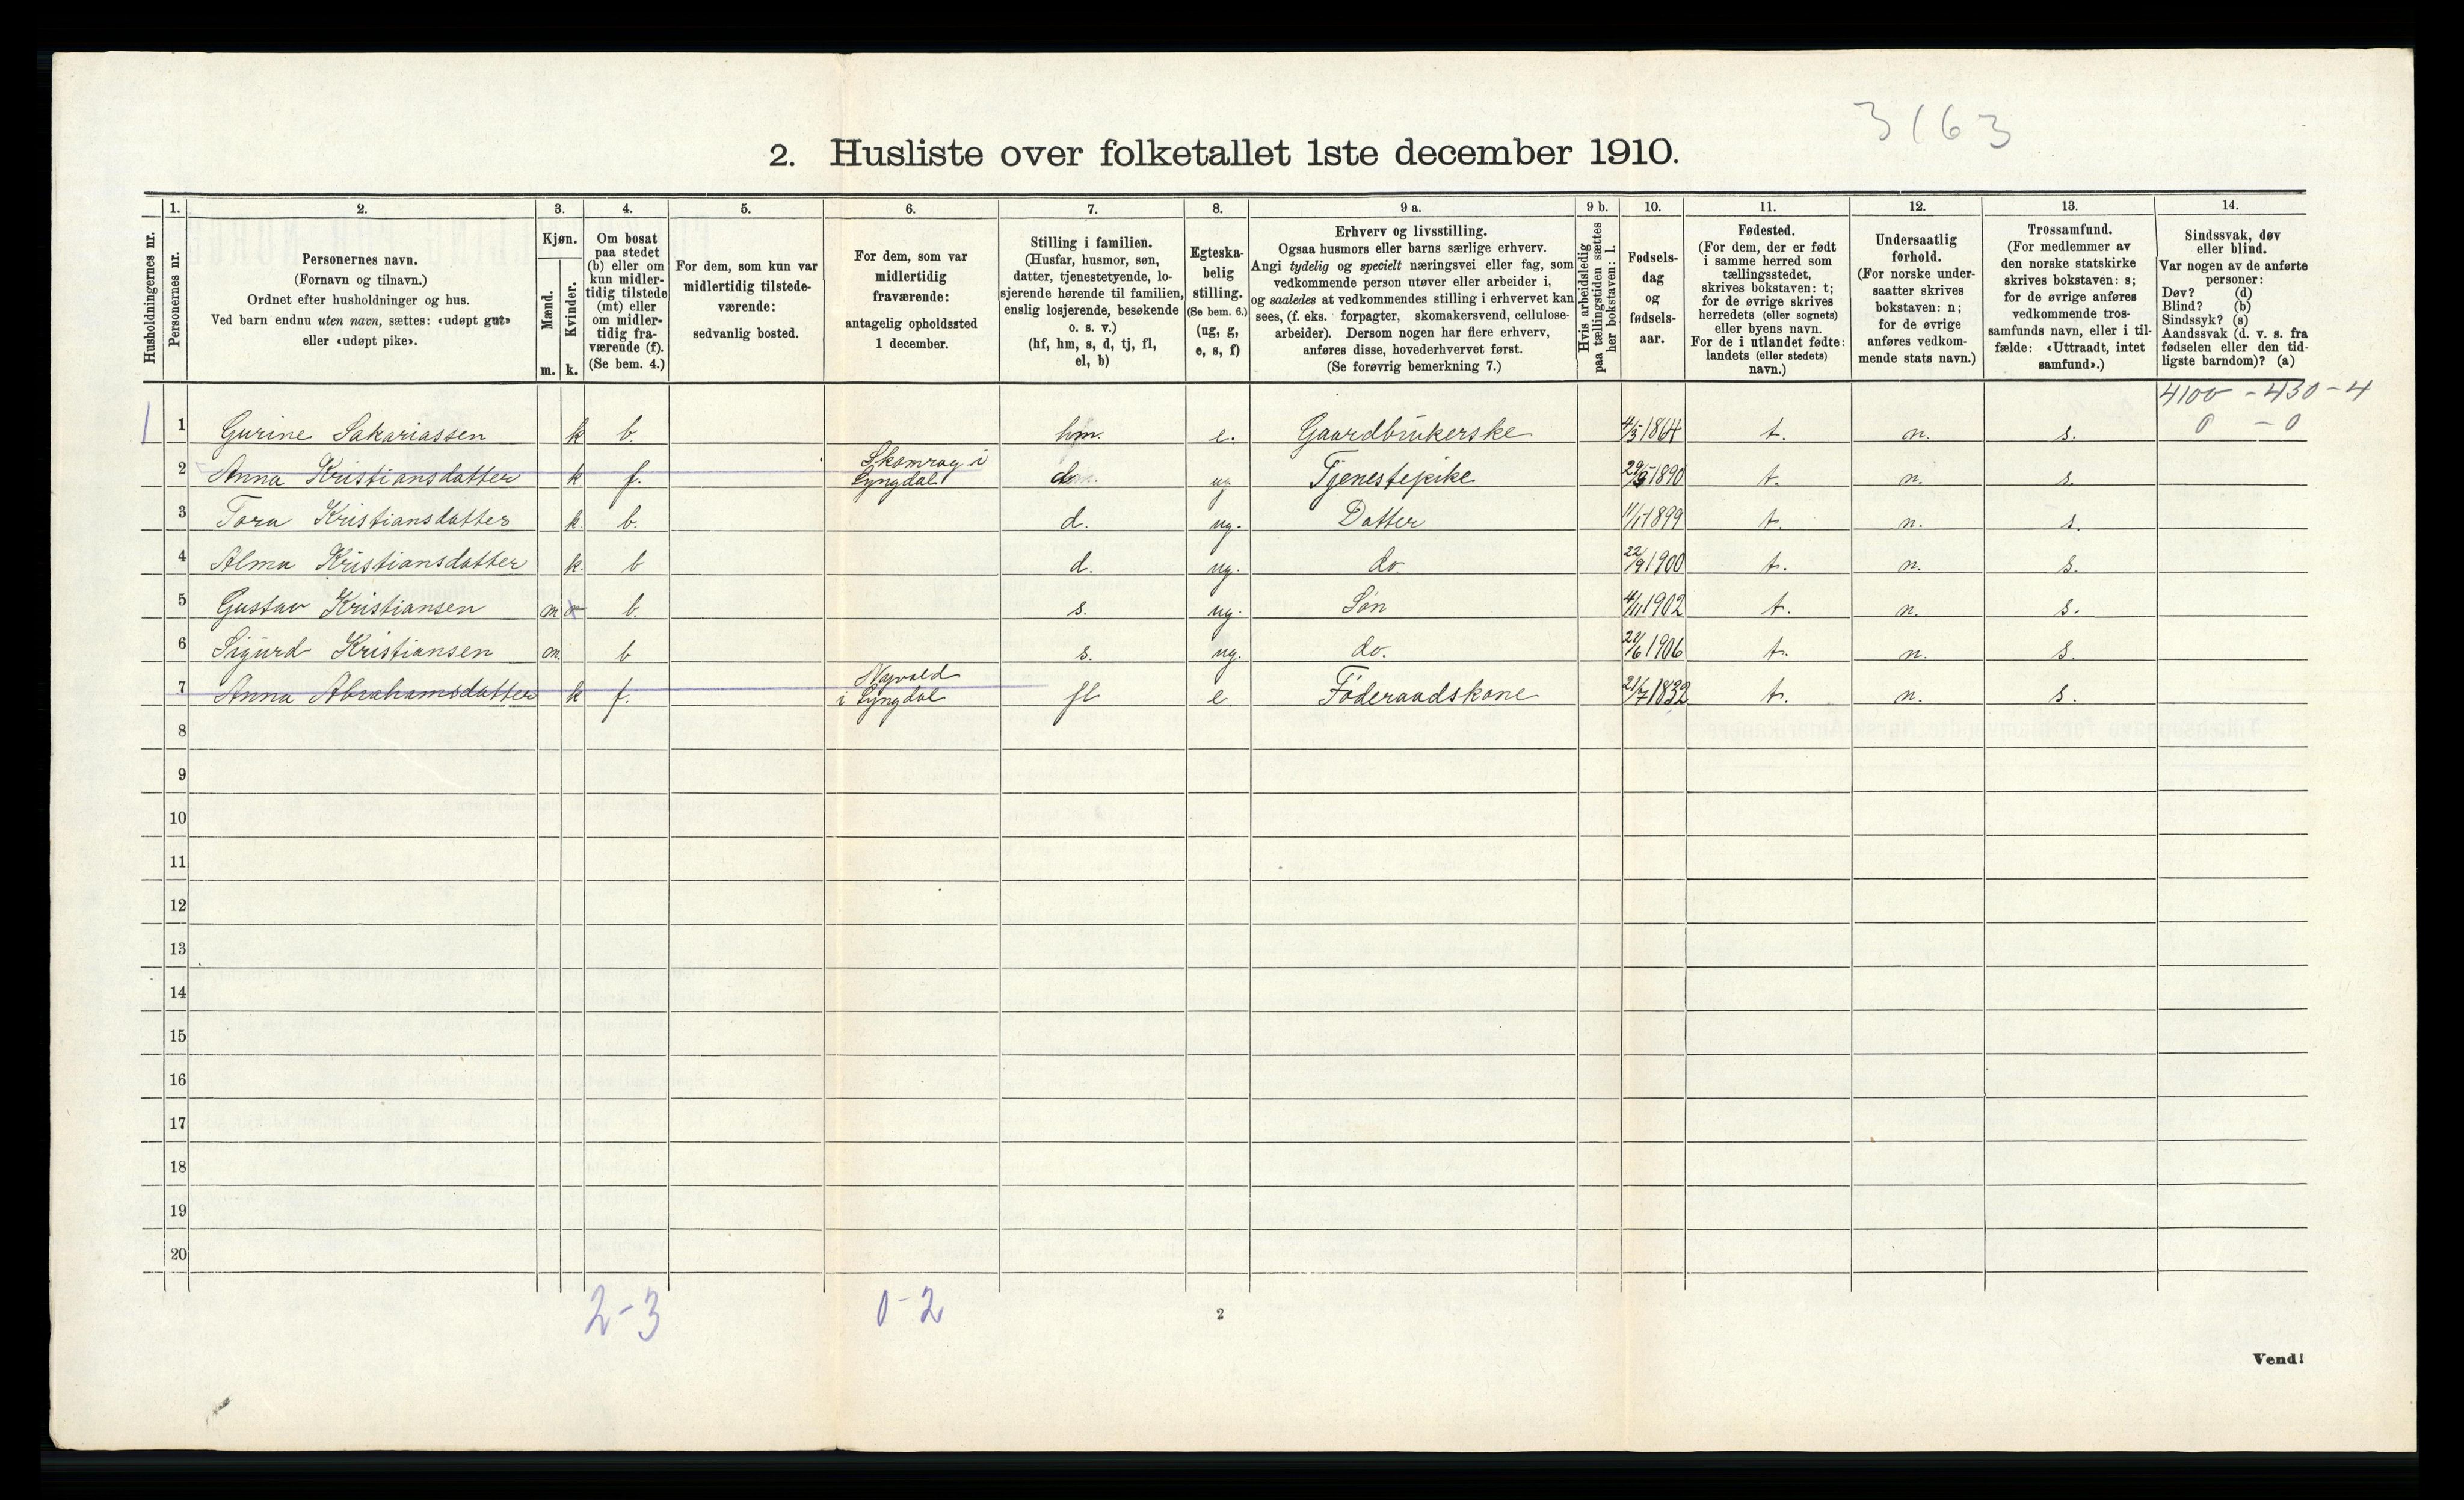 3163
2. Husliste over folketallet 1ste december 1910.
Husholdningernes nr.
1. Personernes nr.
2. Personernes navn.
(Fornavn og tilnavn.)
Ordnet efter husholdninger og hus.
Ved barn endnu uten navn, sættes: «udøpt gut»
eller «udøpt pike».
3. Kjøn.
Mænd. m.
Kvinder. k.
4. Om bosat
paa stedet
(b) eller om
kun midler-
tidig tilstede
(mt) eller
om midler-
tidig fra-
værende (f).
(Se bem. 4.)
5. For dem, som kun var
midlertidig tilstede-
værende:
sedvanlig bosted.
6. For dem, som var
midlertidig
fraværende:
antagelig opholdssted
1 december.
7. Stilling i familien.
(Husfar, husmor, søn,
datter, tjenestetyende, lo-
sjerende hørende til familien,
enslig losjerende, besøkende
o. s. v.)
(hf, hm, s, d, tj, fl,
el, b)
8. Egteska-
belig
stilling.
(Se bem. 6.)
(ug, g,
e, s, f)
9 a. Erhverv og livsstilling.
Ogsaa husmors eller barns særlige erhverv.
Angi tydelig og specielt næringsvei eller fag, som
vedkommende person utøver eller arbeider i,
og saaledes at vedkommendes stilling i erhvervet kan
sees, (f. eks. forpagter, skomakersvend, cellulose-
arbeider). Dersom nogen har flere erhverv,
anføres disse, hovederhvervet først.
(Se forøvrig bemerkning 7.)
9 b. Hvis arbeidsledig
paa tællingstiden sættes
her bokstaven: l.
10. Fødsels-
dag
og
fødsels-
aar.
11. Fødested.
(For dem, der er født
i samme herred som
tællingsstedet,
skrives bokstaven: t;
for de øvrige skrives
herredets (eller sognets)
eller byens navn.
For de i utlandet fødte:
landets (eller stedets)
navn.)
12. Undersaatlig
forhold.
(For norske under-
saatter skrives
bokstaven: n;
for de øvrige
anføres vedkom-
mende stats navn.)
13. Trossamfund.
(For medlemmer av
den norske statskirke
skrives bokstaven: s;
for de øvrige anføres
vedkommende tros-
samfunds navn, eller i til-
fælde: «Uttraadt, intet
samfund».)
14. Sindssvak, døv
eller blind.
Var nogen av de anførte
personer:
Døv? (d)
Blind? (b)
Sindssyk? (s)
Aandssvak (d. v. s. fra
fødselen eller den tid-
ligste barndom)? (a)
4100 - 430 - 4
0 - 0
1 1 Gurine Sakariassen k b. hm. e. Gaardbrukerske 4/5 1864 t. n. s.
2 Anna Kristiansdatter k f. Skomrag i Lyngdal d. ug Tjenestepike 1890 t. n. s.
3 Tora Kristiansdatter k. b. d. ug. Datter 11/1 1899 t. n. s.
4 Alma Kristiansdatter k. b d. ug. do 22/9 1900 t. n. s.
5 Gustav Kristiansen m b. s. ug. Søn 4/11 1902 t. n. s.
6 Sigurd Kristiansen m. b s. ug. do. 1906 t. n. s.
7 Anna Abrahamsdatter k f. i Lyngdal fl e Føderaadskone 21/7 1832 t. n. s.
8
9
10
11
12
13
14
15
16
17
18
19
20
2-3 0-2
2
Vend!